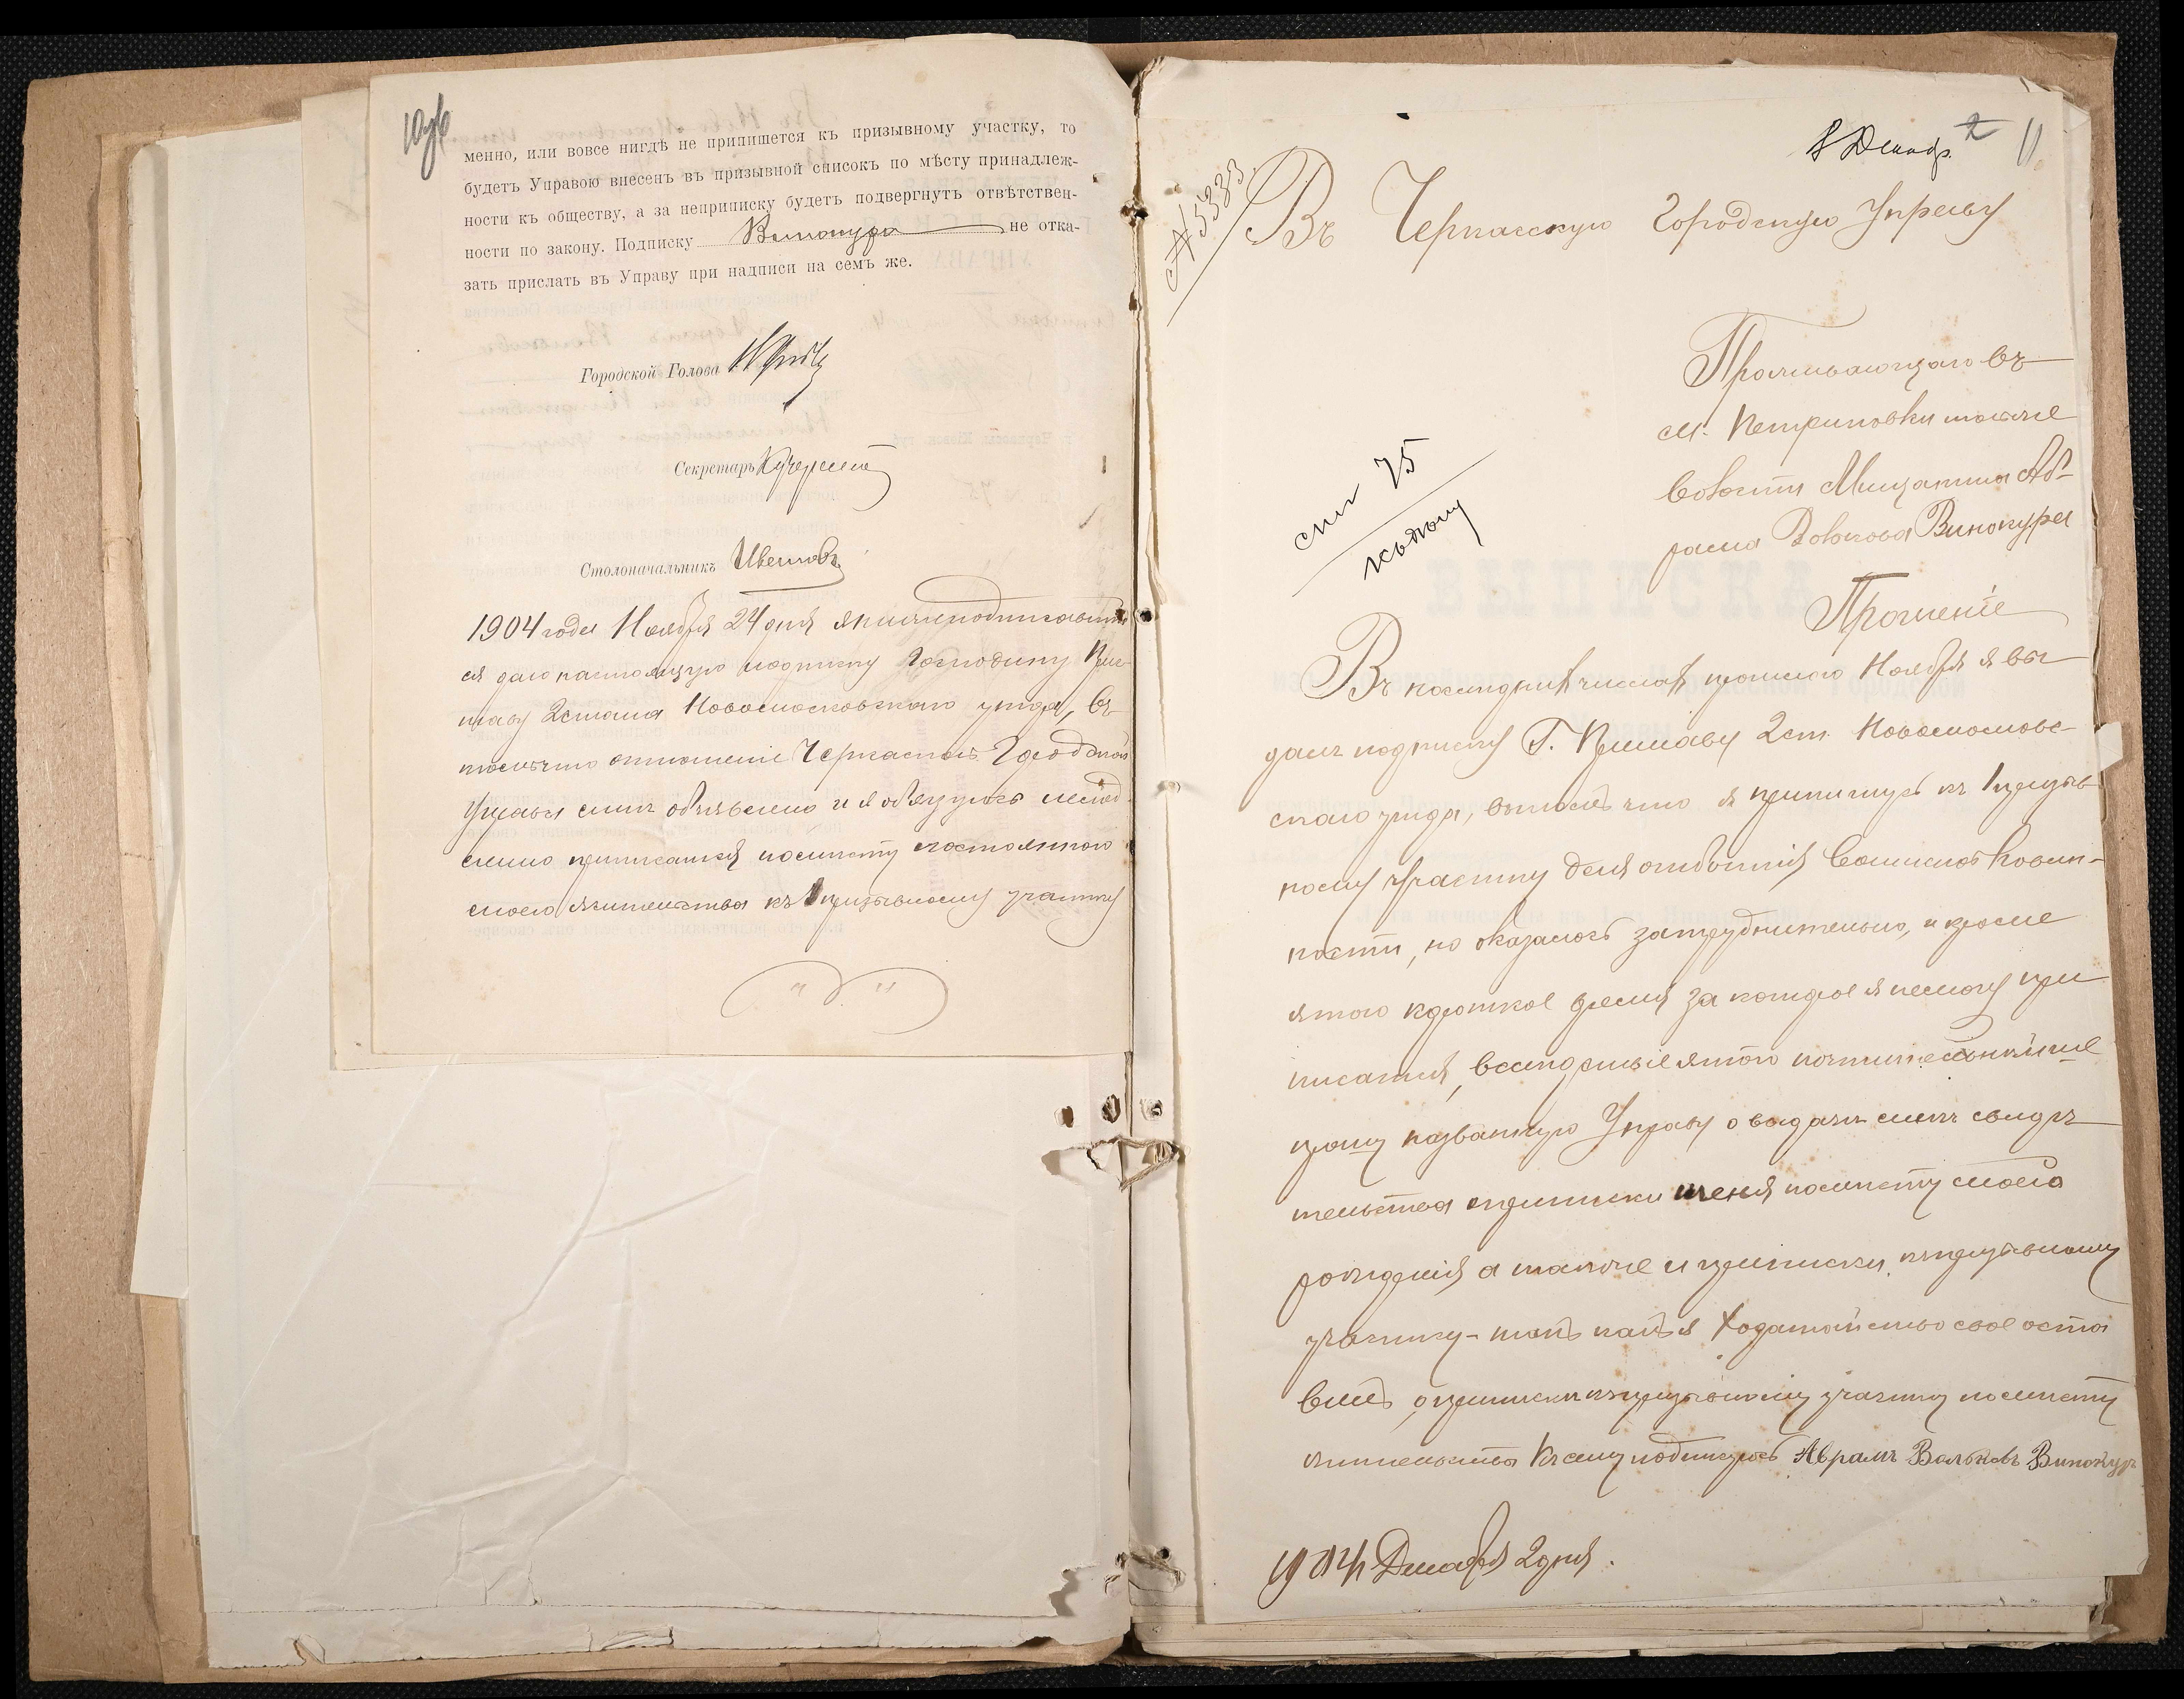 10об
менно, или вовсе нигдѣ не припишется къ призывному участку, то
будетъ Управою внесенъ въ призывной списокъ по мѣсту принадлеж-
ности къ обществу, а за неприписку будетъ подвергнутъ отвѣтствен-
ности по закону. Подписку Винокура не отка-
зать прислать въ Управу при надписи на семъ же.
Городской Голова
Секретарь
Столоначальникъ Цвѣтковъ
1904 года Ноября 24 дня я нижеподписавший
ся даю настоящую подписку Господину При-
таву 2 стана Новомосковского уезда, въ
томъ что отношенiе Черкаской Городской
Управы мнѣ объявлено и я обязуюсь
приписатся по месту постоянного
моего жительства къ 1 призывному участку
8 Декабр. 2 11
№ 5383
Въ Черкасскую Городскую Управу
Проживающаго въ
м. Петриковки тожже
волости Мещанина Аб-
рама Волькова Винокура
спис 75
Прошенiе
Въ последнихъ числахъ прошлого Ноября я вы
далъ подписку Г. Приставу 2 ст. Новомосковс-
скаго уезда, в томъ что я припишусь къ 1 призыв
ному участку для отбытiя Воинской Повин-
ности, но оказалось затруднительно, и кроме
этого короткое время за которое я немогу при
писатся, вследствiе этого почтительнейше
прошу названную Управу о выдачи мне свиде
тельства о приписки меня по месту моего
рождения а также и приписки къ призывному
участку - такъ какъ я ходатайство свое оста
вилъ о приписки къ призывному участку по месту
жительства Къ сему подпишусь Абрамъ Вольковъ Винокуръ
1904 Декабря 2 дня.